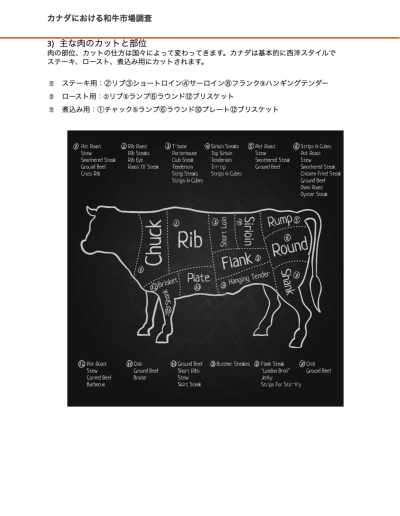 カナダにおける和牛市場調査
3) 主な肉のカットと部位
肉の部位、カットの仕方は国々によって変わってきます。カナダは基本的に西洋スタイルで
ステーキ、ロースト、煮込み用にカットされます。
ステーキ用：②リブ③ショートロイン④サーロイン⑧フランク⑨ハンギングテンダー
ロースト用：②リブ⑤ランプ⑥ラウンド⑫ブリスケット
煮込み用：①チャック⑤ランプ⑥ラウンド⑩プレート⑫ブリスケット
① Pot Roast
Stew
Smothered Steak
Ground Beef
Cross Rib
② Rib Roast
Rib Steaks
Rib Eye
Roast Of Steak
③ T-bone
Porterhouse
Club Steak
Tenderloin
Strip Steaks
Strips & Cubes
④ Sirloin Steaks
Top Sirloin
Tenderloin
Tri-Tip
Strips & Cubes
⑤ Pot Roast
Stew
Smothered Steak
Ground Beef
⑥ Strips & Cubes
Pot Roast
Stew
Smothered Steak
Chicken Fried Steak
Ground Beef
Oven Roast
Oyster Steak
Chuck
①
② Rib
Short Loin
③
④ Sirloin
Rump ⑤
⑥
Round
Flank ⑧
⑨ Hanging Tender
Plate
⑩
⑫ Brisket
Shank
Shank ⑦
⑫ Pot Roast
Stew
Corned Beef
Barbecue
⑪ Chili
Ground Beef
Braise
⑩ Ground Beef
Short Ribs
Stew
Skirt Steak
⑨ Butcher Steakes
⑧ Flank Steak
"London Broil"
Jerky
Strips For Stir-fry
⑦ Chili
Ground Beef